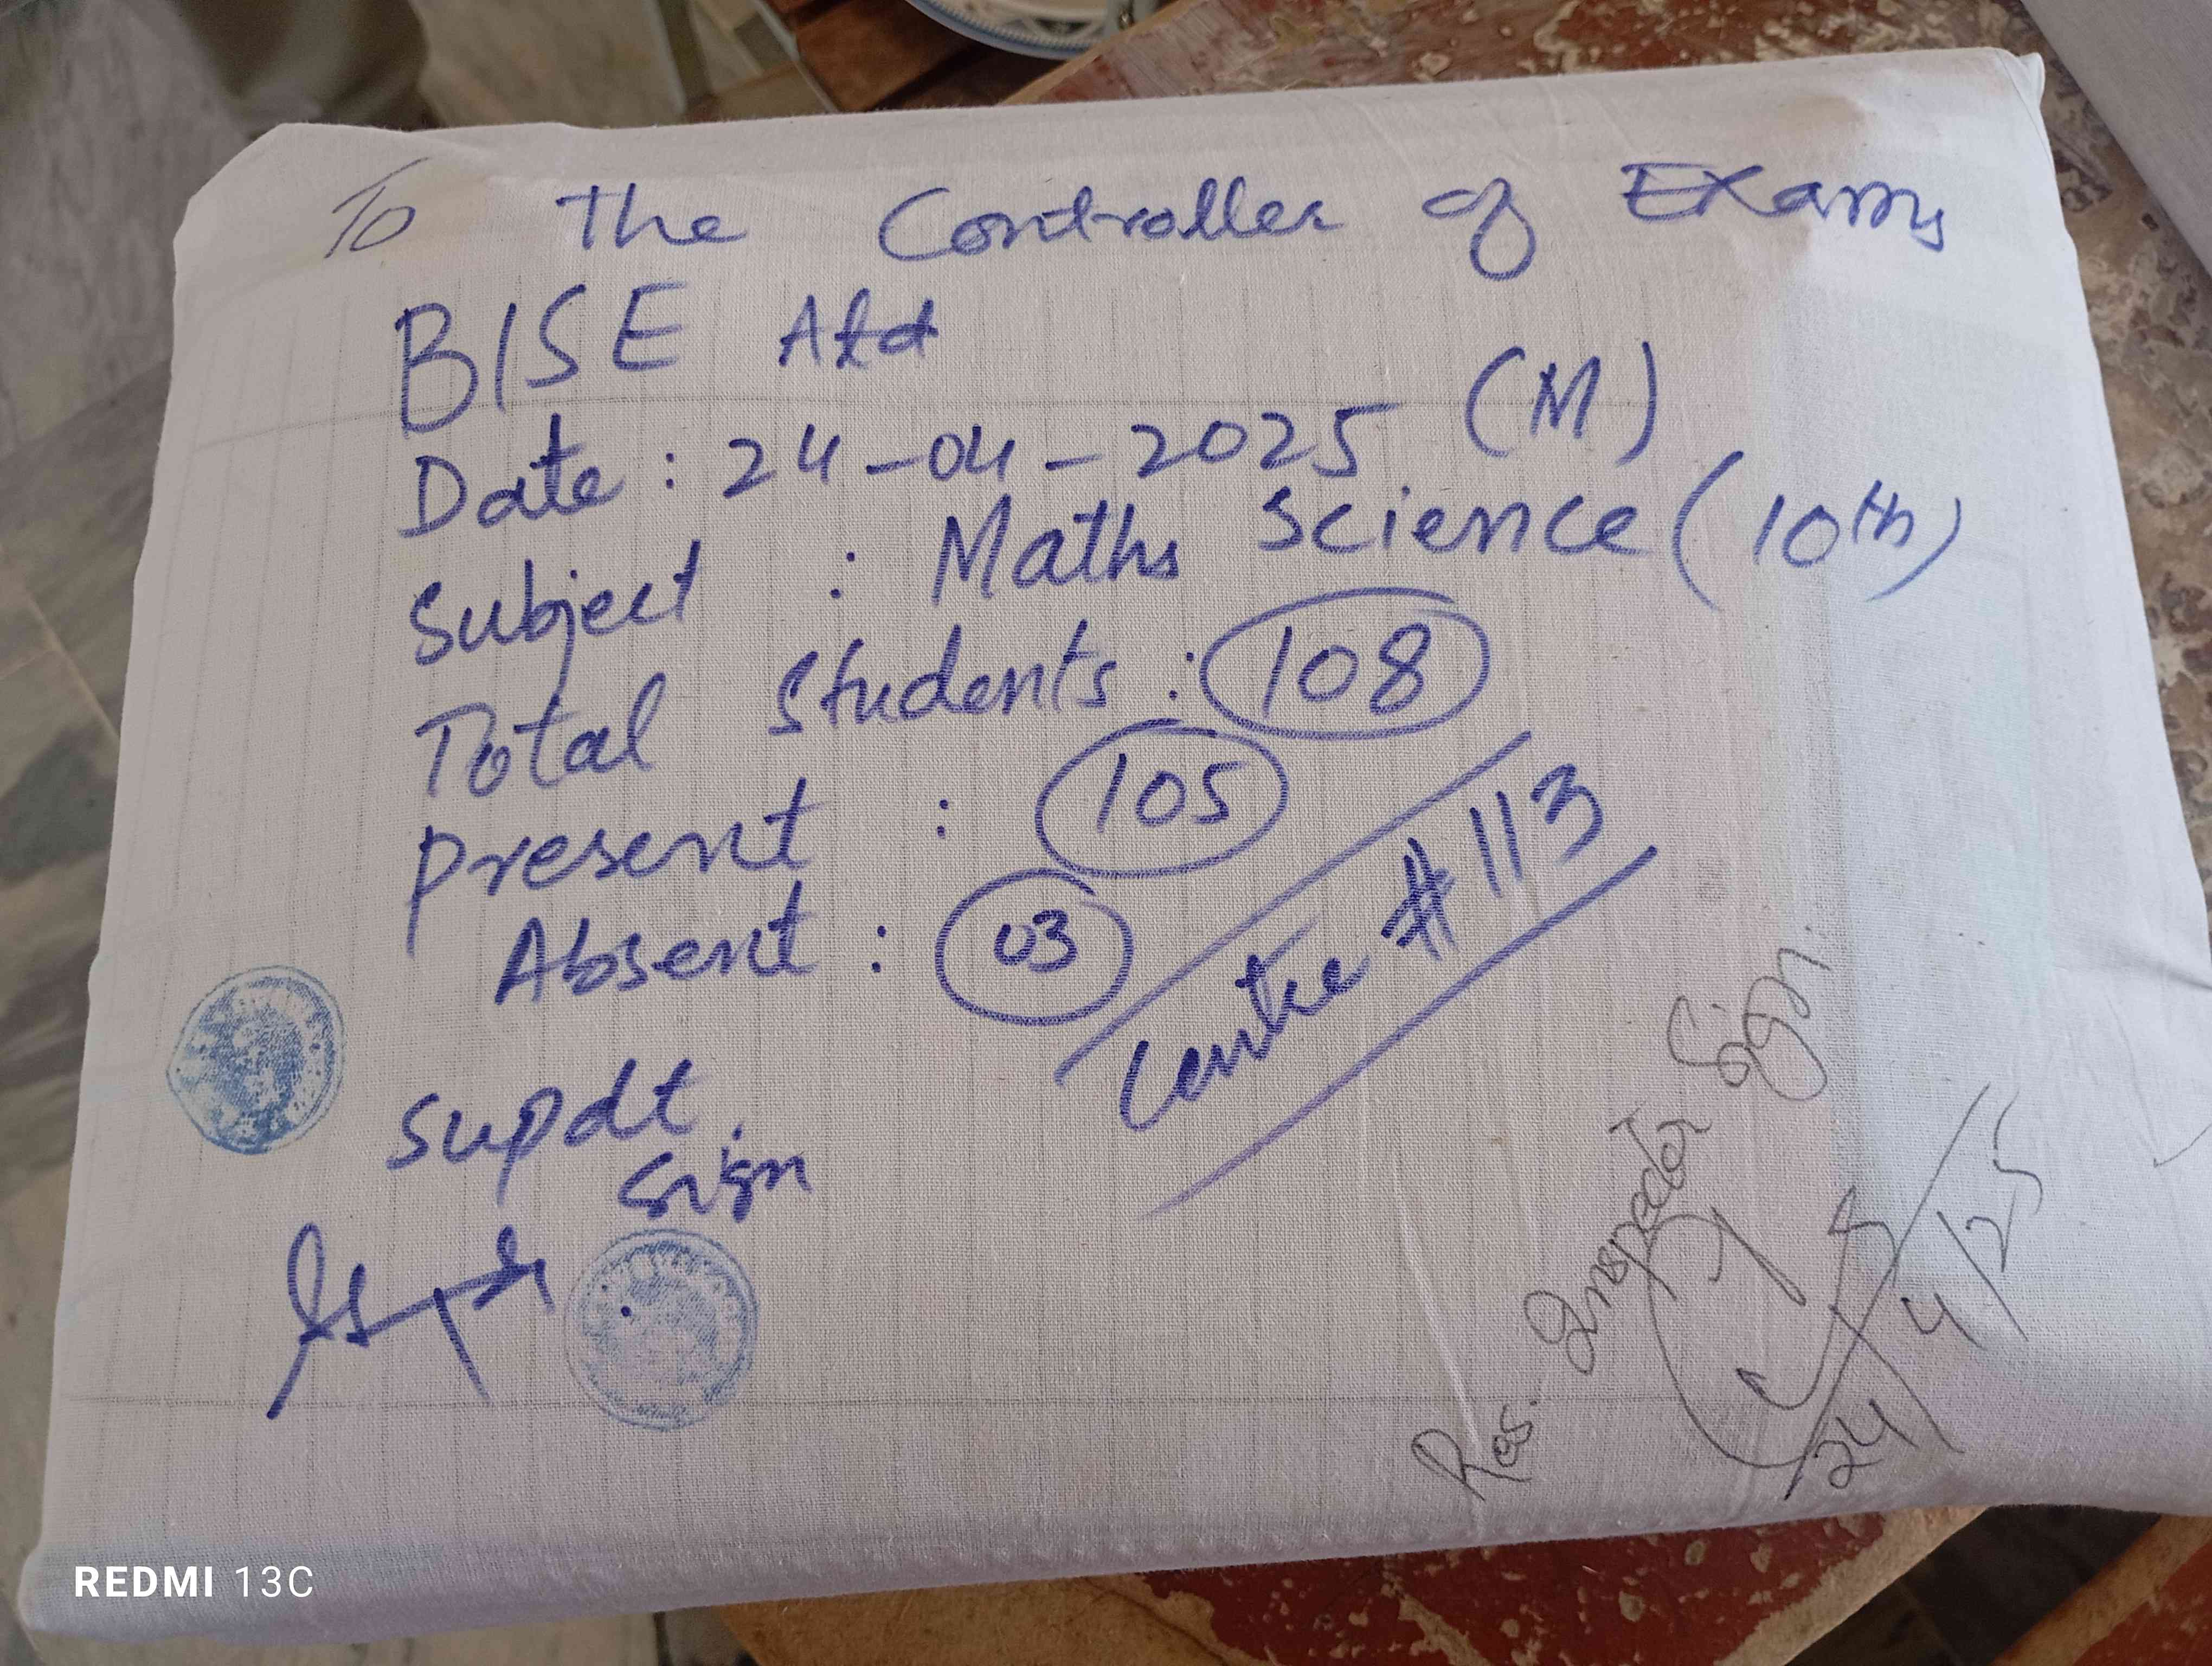 To The Controller of Exams
BISE Atd
Date : 24-04-2025 (M)
Subject : Maths Science (10th)
Total Students : 108
Present : 105
Absent : 03
Centre # 113
Supdt.
Sign
Res. Inspector Sign.
24/4/25
REDMI 13C